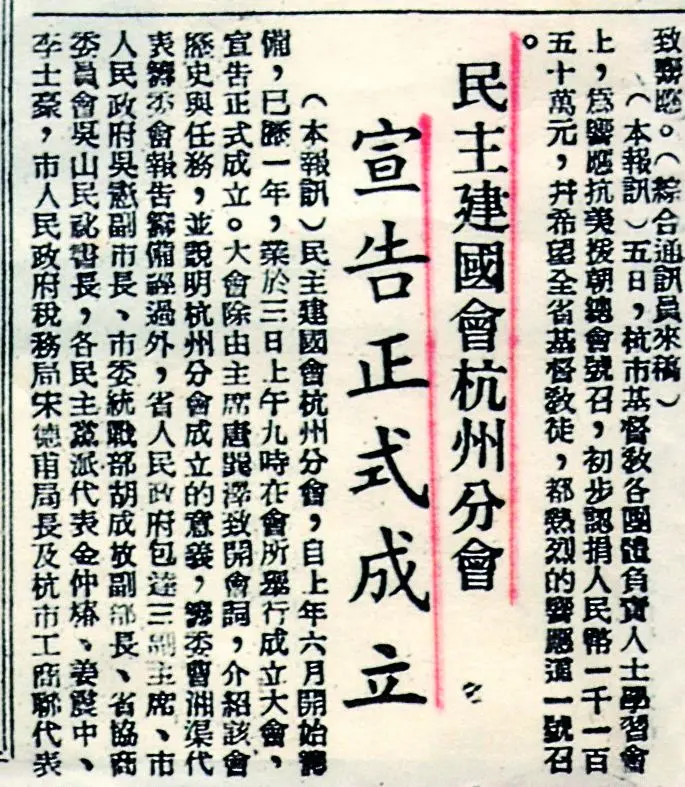 致響應。(綜合通訊員來稿)
(本報訊)五日,杭市基督教各團體負責人士學習會
上,爲響應抗美援朝總會號召,初步認捐人民幣一千一百
五十萬元,并希望全省基督教徒,都熱烈的響應這一號召
。
民主建國會杭州分會
宣告正式成立
(本報訊)民主建國會杭州分會,自上年六月開始籌
備,已歷一年,業於三日上午九時在會所舉行成立大會,
宣告正式成立。大會除由主席唐巽澤致開會詞,介紹該會
歷史與任務,並說明杭州分會成立的意義,籌委曹湘渠代
表籌委會報告籌備經過外,省人民政府包達三副主席、市
人民政府吳憲副市長、市委統戰部胡成放副部長、省協商
委員會吳山民祕書長,各民主黨派代表金仲椿、姜震中、
李士豪,市人民政府稅務局宋德甫局長及杭市工商聯代表